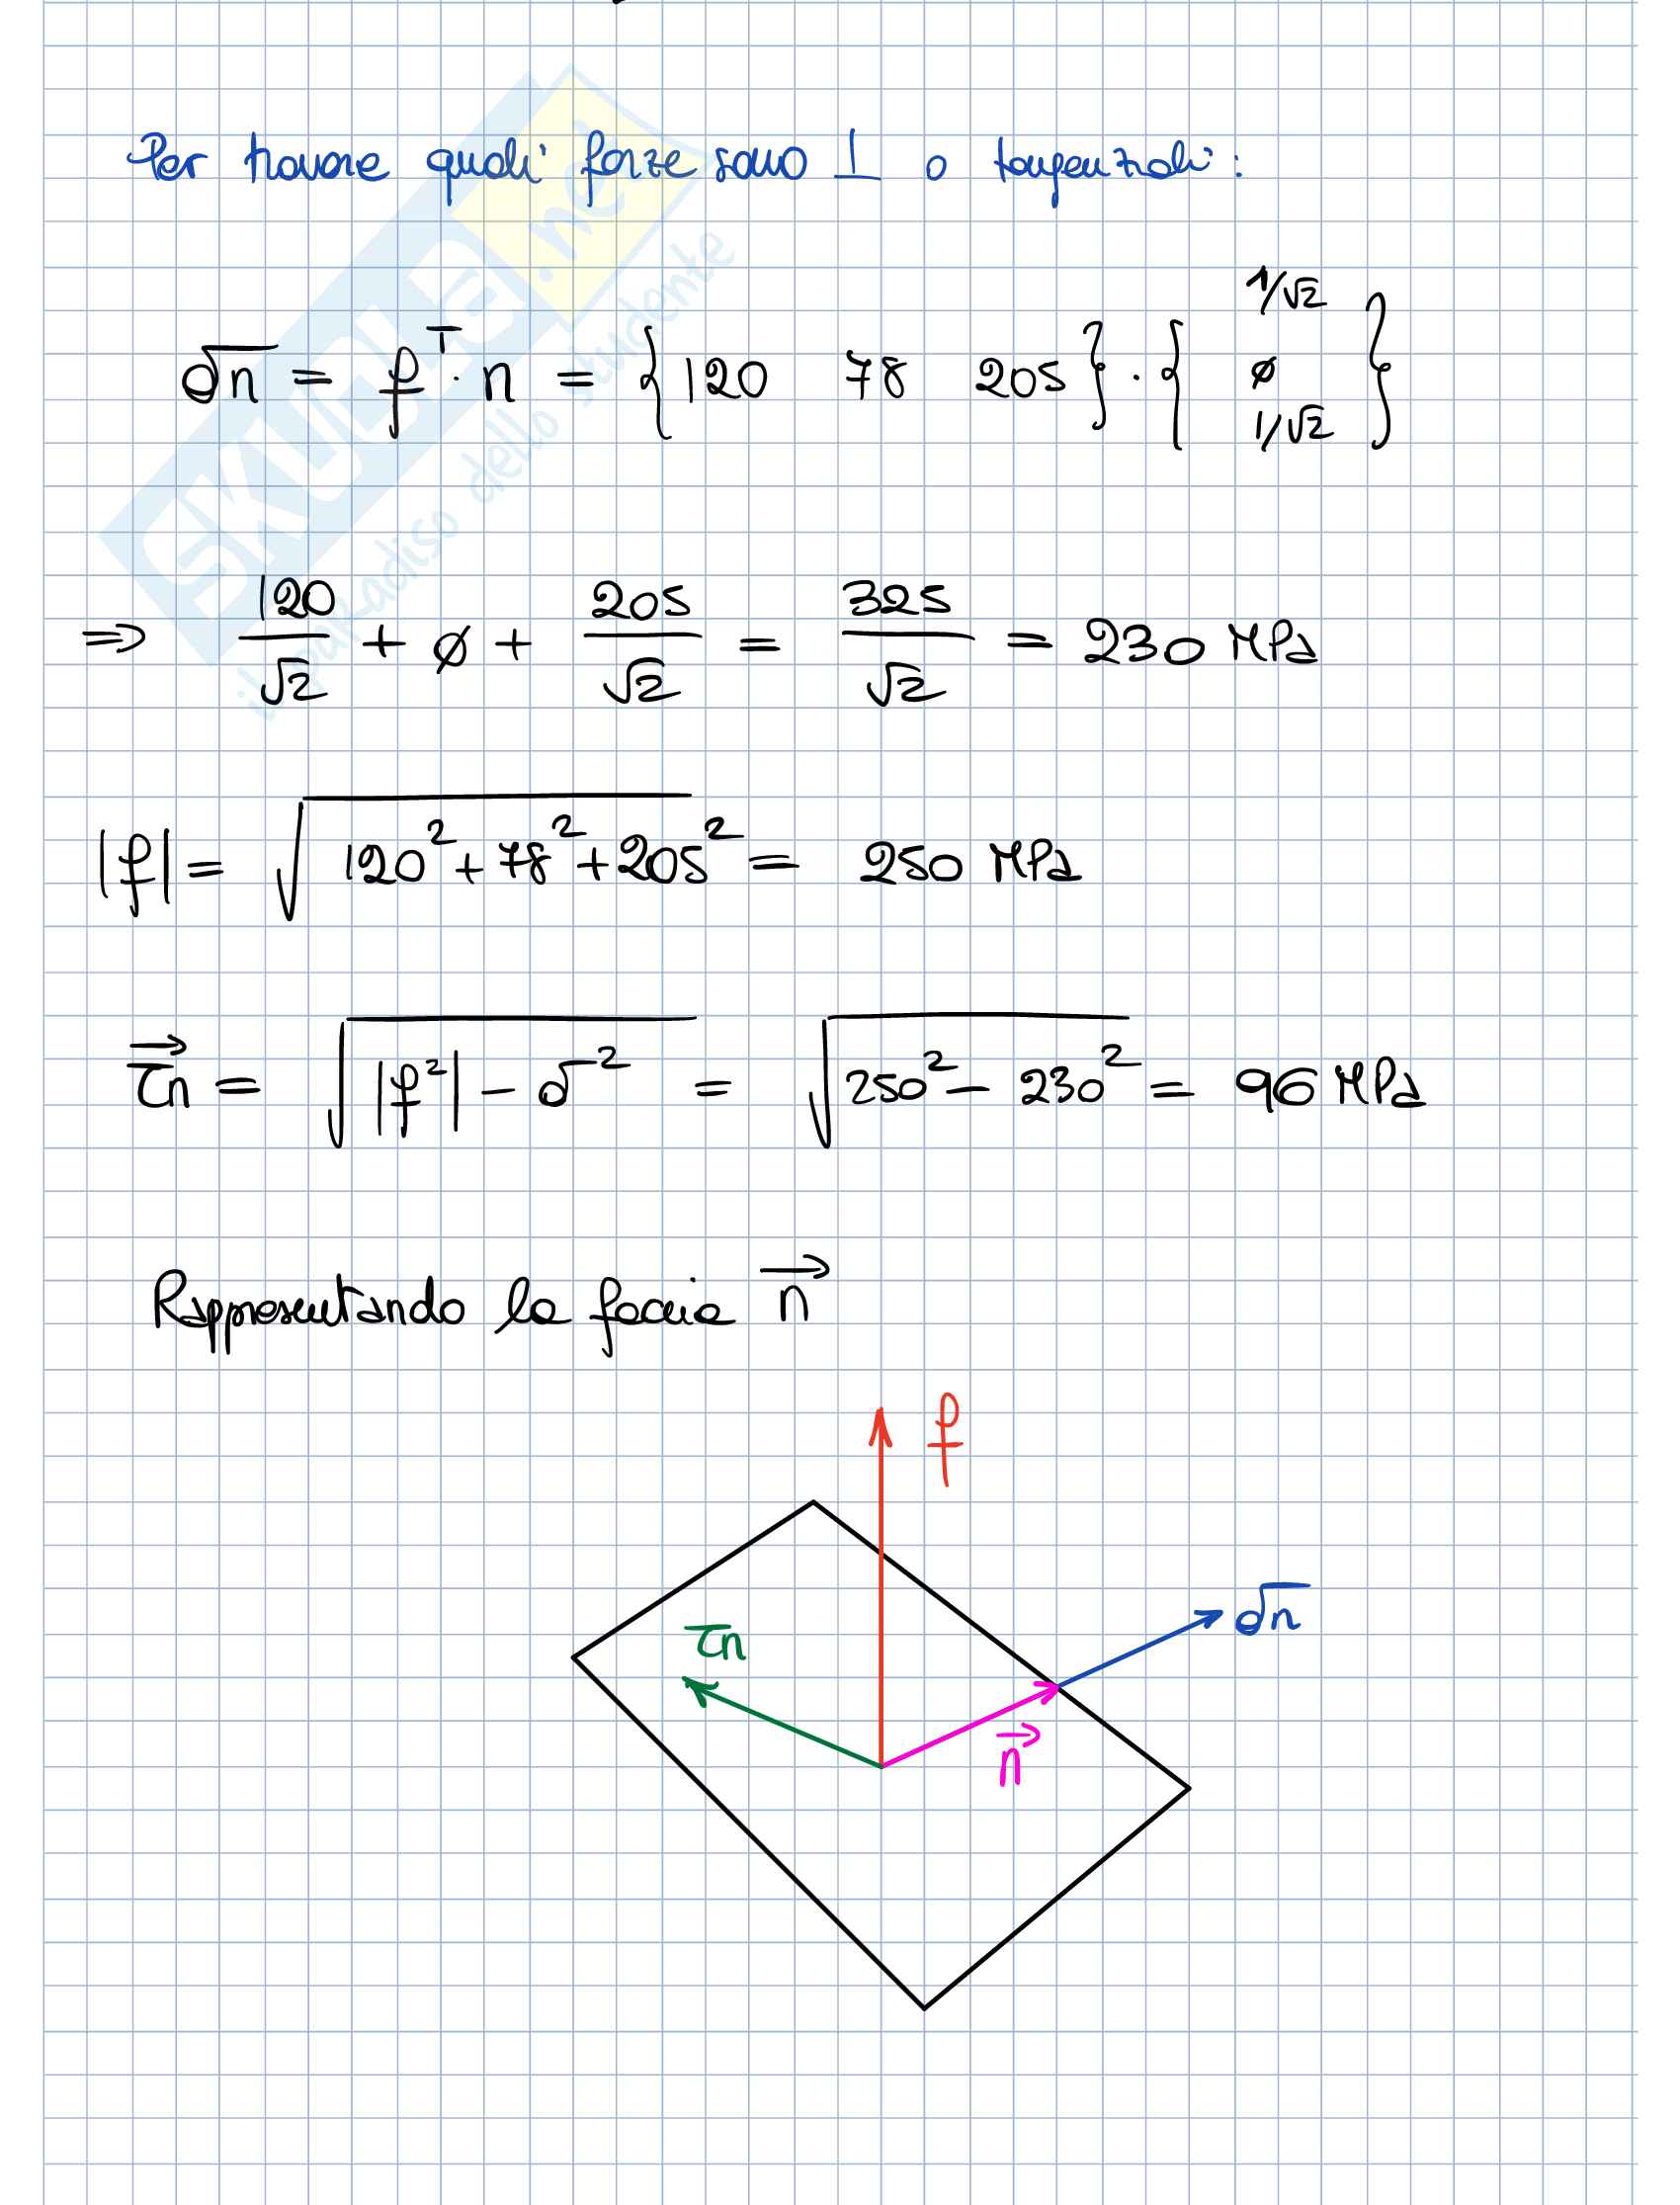 Per trovare quali forze sono ⊥ o tangenziali:
σn = f^T · n = {120 78 205} · {1/√2 ø 1/√2}
⇒ 120/√2 + ø + 205/√2 = 325/√2 = 230 MPa
|f| = √(120² + 78² + 205²) = 250 MPa
τn = √(|f²| - σ²) = √(250² - 230²) = 96 MPa
Rappresentando la faccia n
f
τn
σn
n
SKUOLA.net
il paradiso dello studente